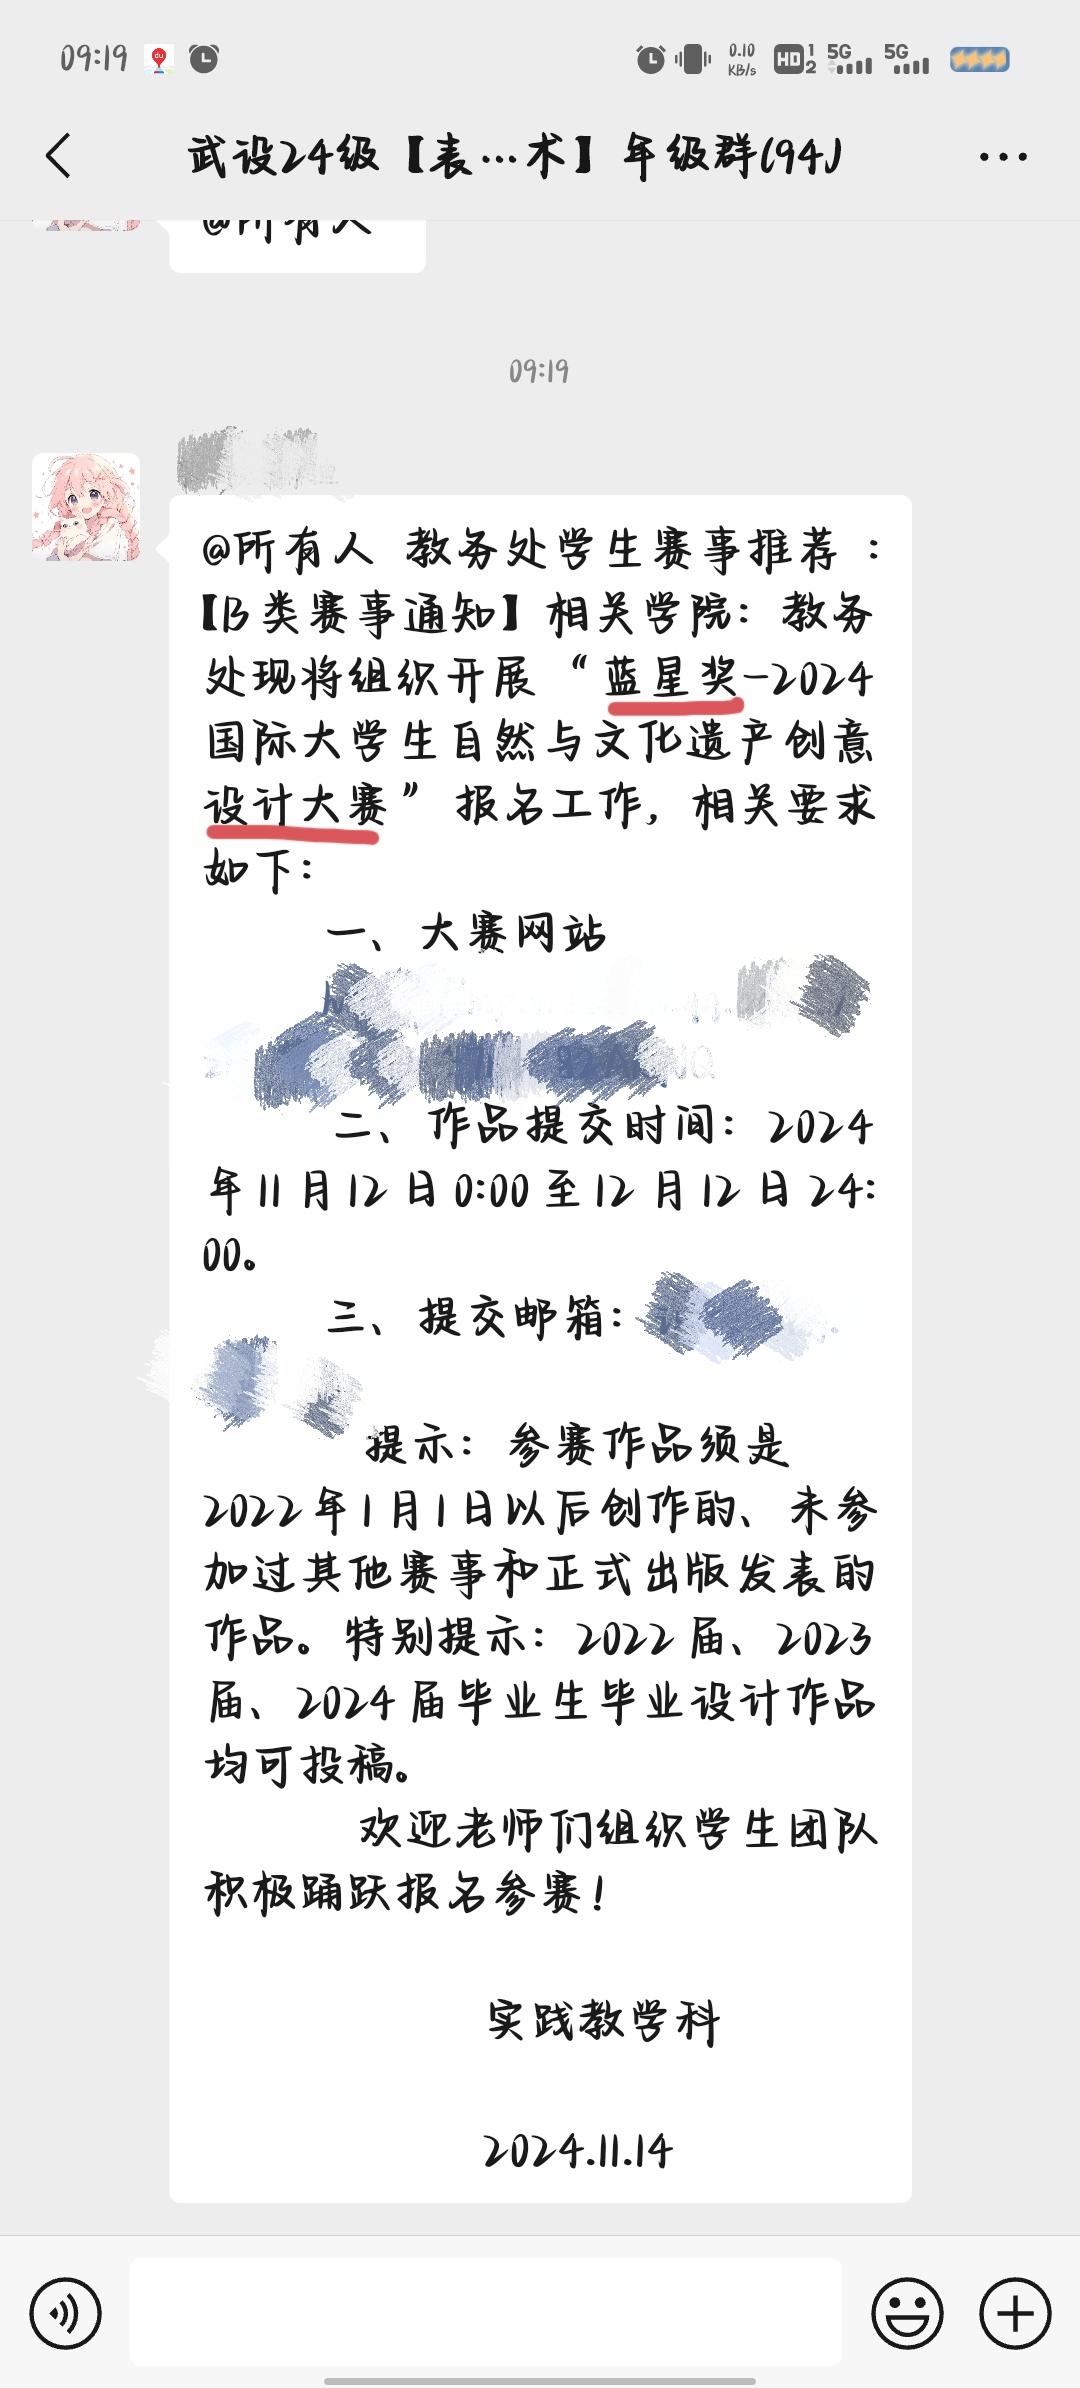 09:19
0.10
KB/s
HD 1 2
5G
5G
武设24级【表…术】年级群(94)
@所有人
09:19
@所有人 教务处学生赛事推荐 ：
【B类赛事通知】相关学院：教务
处现将组织开展 “蓝星奖-2024
国际大学生自然与文化遗产创意
设计大赛” 报名工作，相关要求
如下：
一、大赛网站
二、作品提交时间：2024
年11月12日0:00至12月12日24:
00。
三、提交邮箱：
提示：参赛作品须是
2022年1月1日以后创作的、未参
加过其他赛事和正式出版发表的
作品。特别提示：2022届、2023
届、2024届毕业生毕业设计作品
均可投稿。
欢迎老师们组织学生团队
积极踊跃报名参赛！
实践教学科
2024.11.14